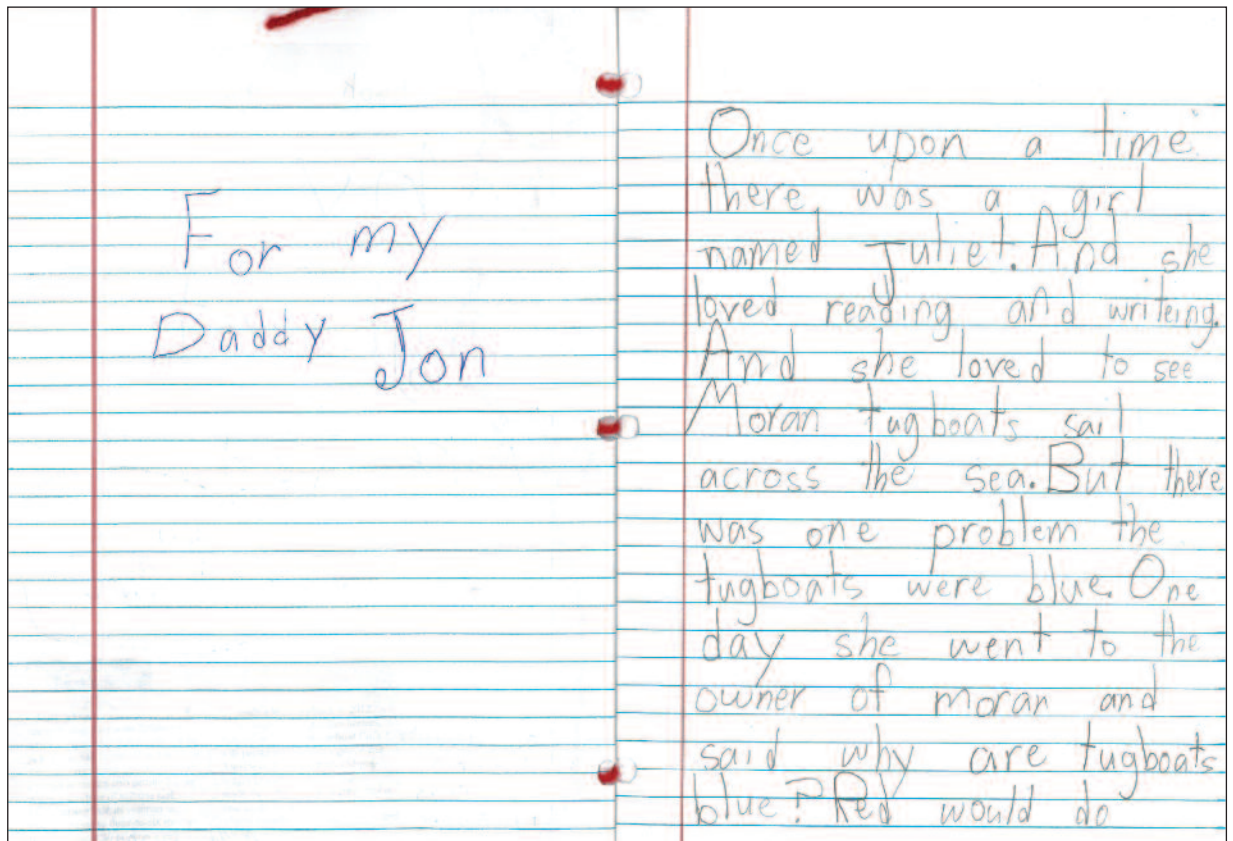 For my
Daddy Jon
Once upon a time
there was a girl
named Juliet. And she
loved reading and writeing.
And she loved to see
Moran tugboats sail
across the sea. But there
was one problem the
tugboats were blue. One
day she went to the
owner of moran and
said why are tugboats
blue? Red would do